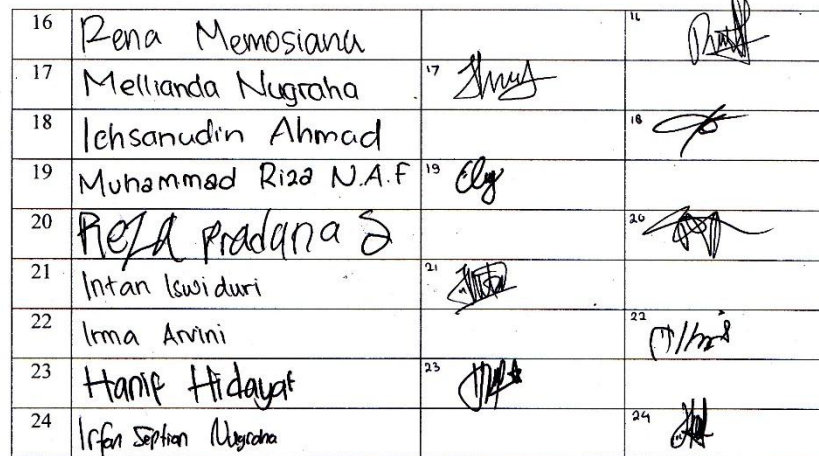 16 Rena Memosiana 16
17 Mellianda Nugraha 17
18 Ichsanudin Ahmad 18
19 Muhammad Riza N.A.F 19
20 Reza Pradana S 20
21 Intan Iswiduri 21
22 Irma Arvini 22
23 Hanif Hidayat 23
24 Irfan Septian Nugraha 24